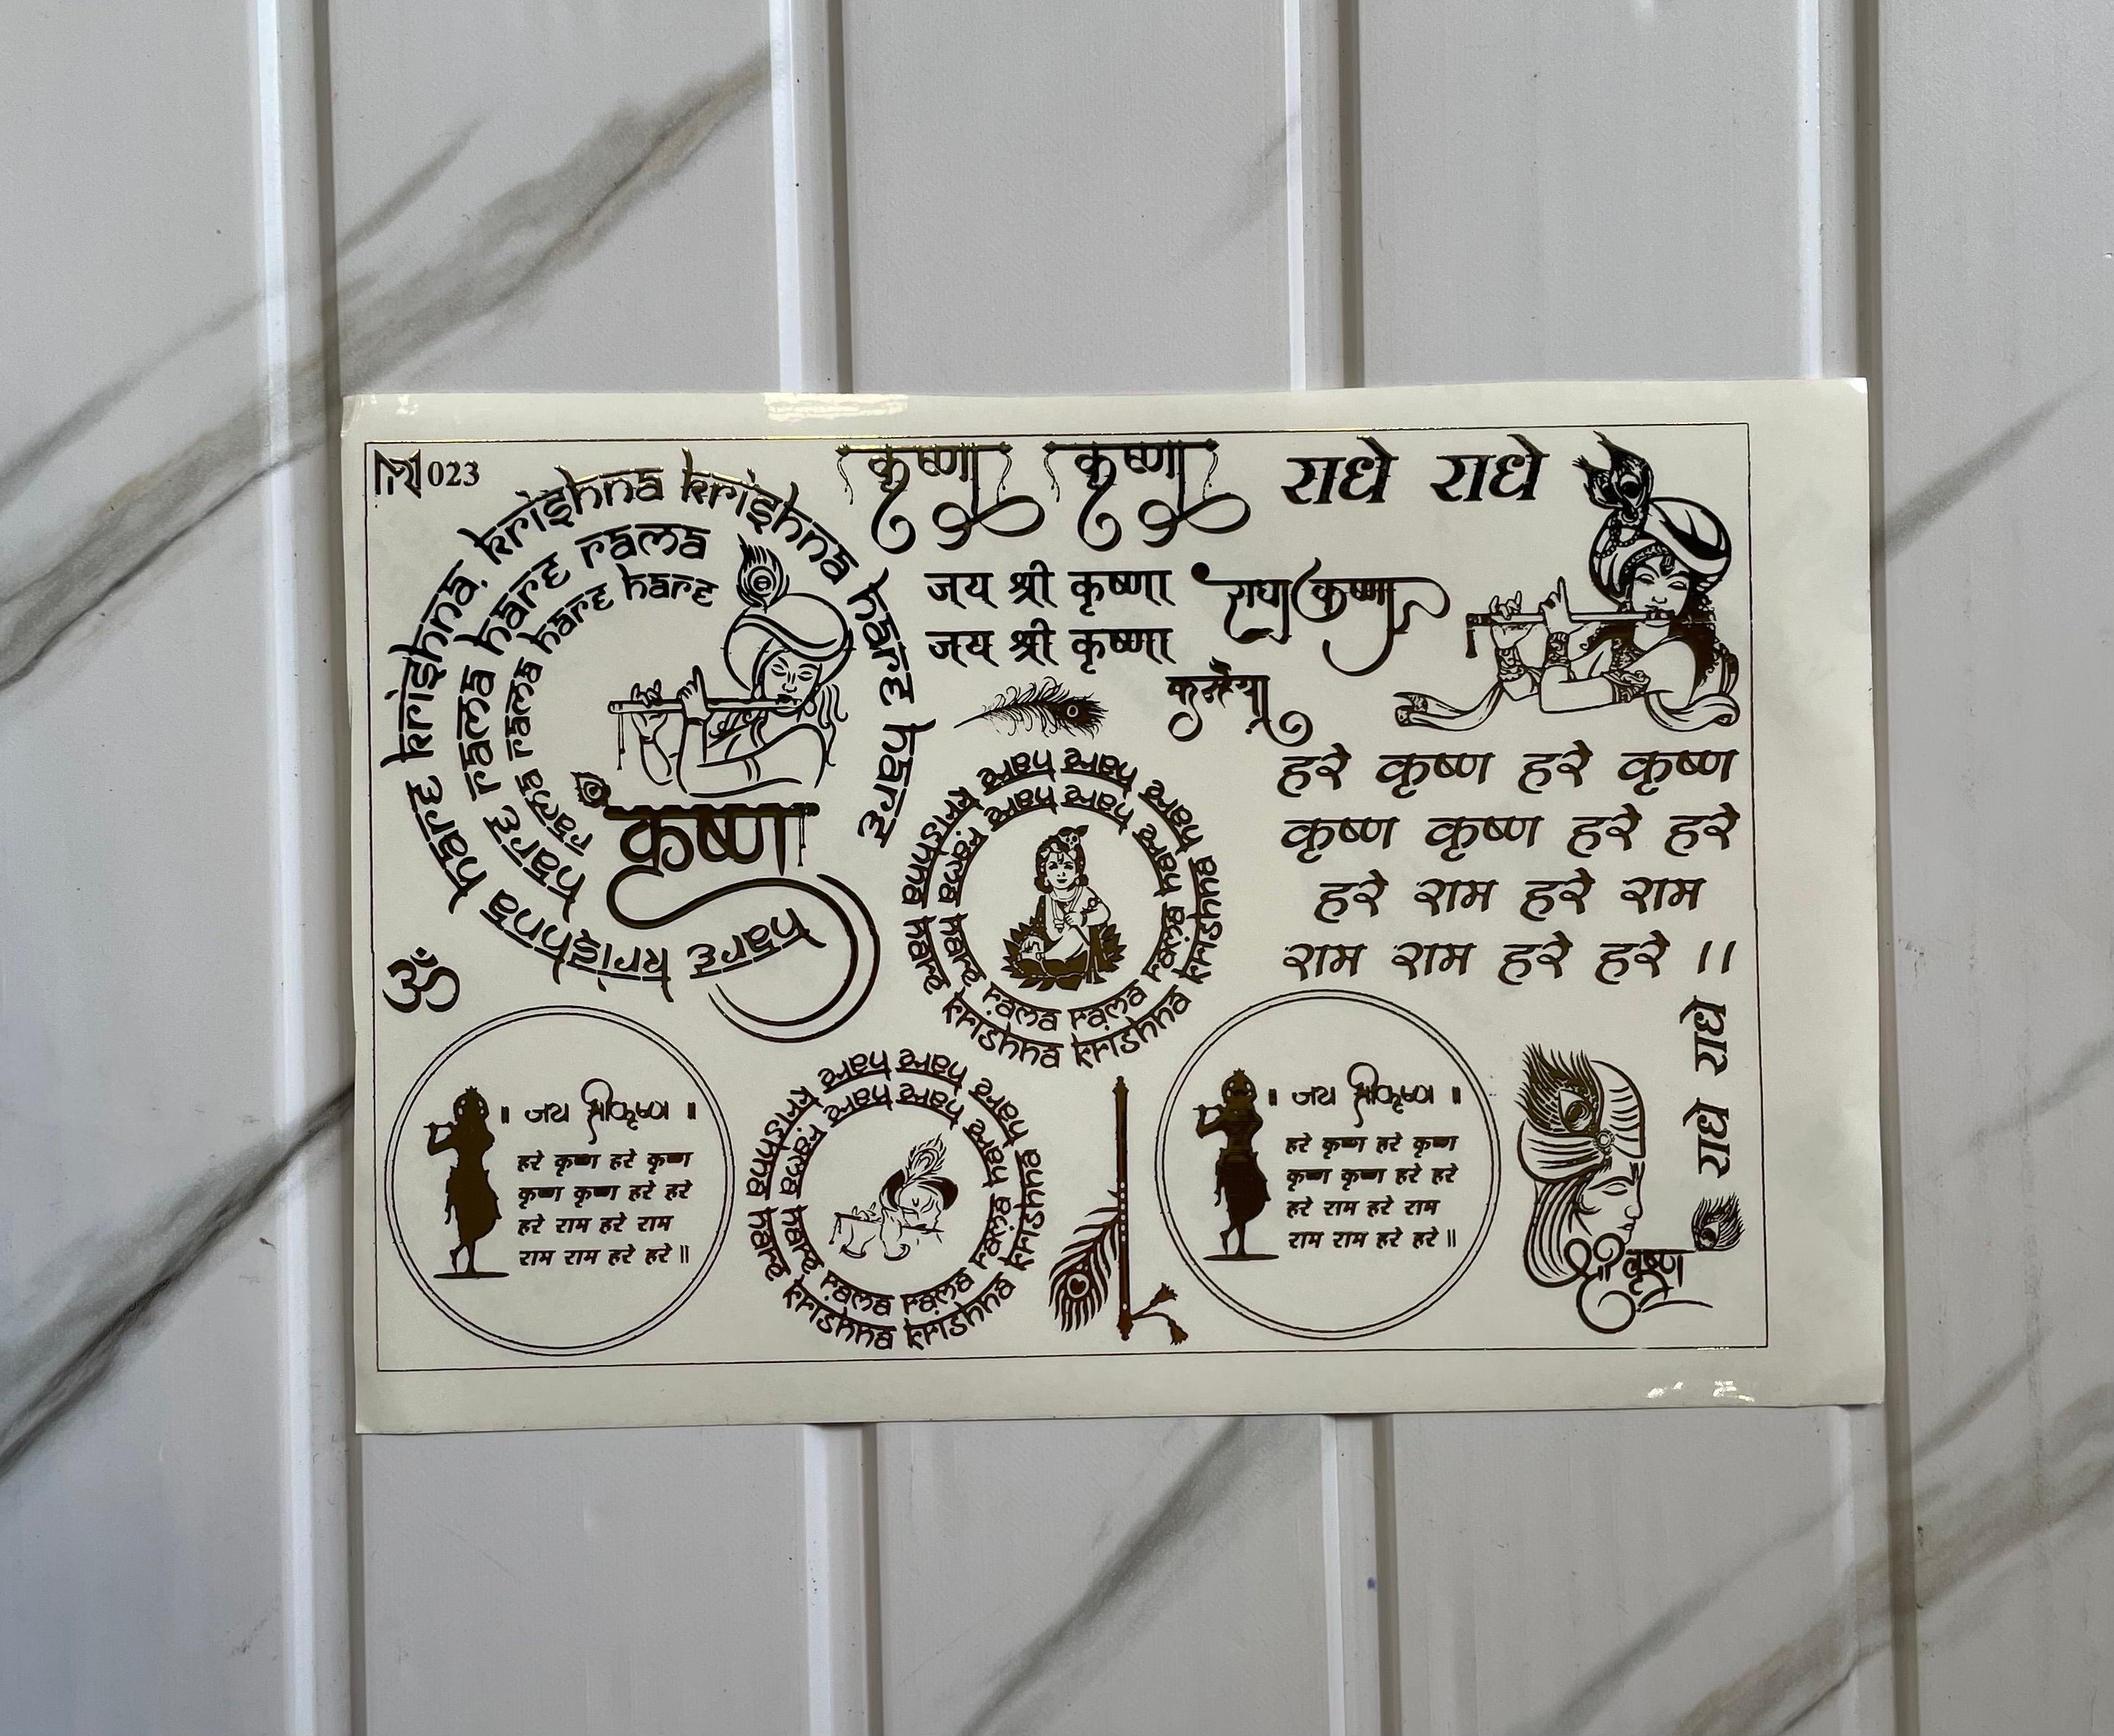 023
krishna krishna hare hare
hare krishna hare krishna,
hare rama hare rama
rama rama hare hare
कृष्णा
कृष्णा कृष्णा
राधे राधे
जय श्री कृष्णा
जय श्री कृष्णा
राधा कृष्णा
कन्हैया
हरे कृष्ण हरे कृष्ण
कृष्ण कृष्ण हरे हरे
हरे राम हरे राम
राम राम हरे हरे ।।
hare krishna hare krishna krishna krishna hare hare
hare rama hare rama rama rama hare hare
ॐ
॥ जय श्री कृष्ण ॥
हरे कृष्ण हरे कृष्ण
कृष्ण कृष्ण हरे हरे
हरे राम हरे राम
राम राम हरे हरे॥
hare krishna hare krishna krishna krishna hare hare
hare rama hare rama rama rama hare hare
॥ जय श्री कृष्ण ॥
हरे कृष्ण हरे कृष्ण
कृष्ण कृष्ण हरे हरे
हरे राम हरे राम
राम राम हरे हरे॥
राधे राधे
श्री कृष्ण